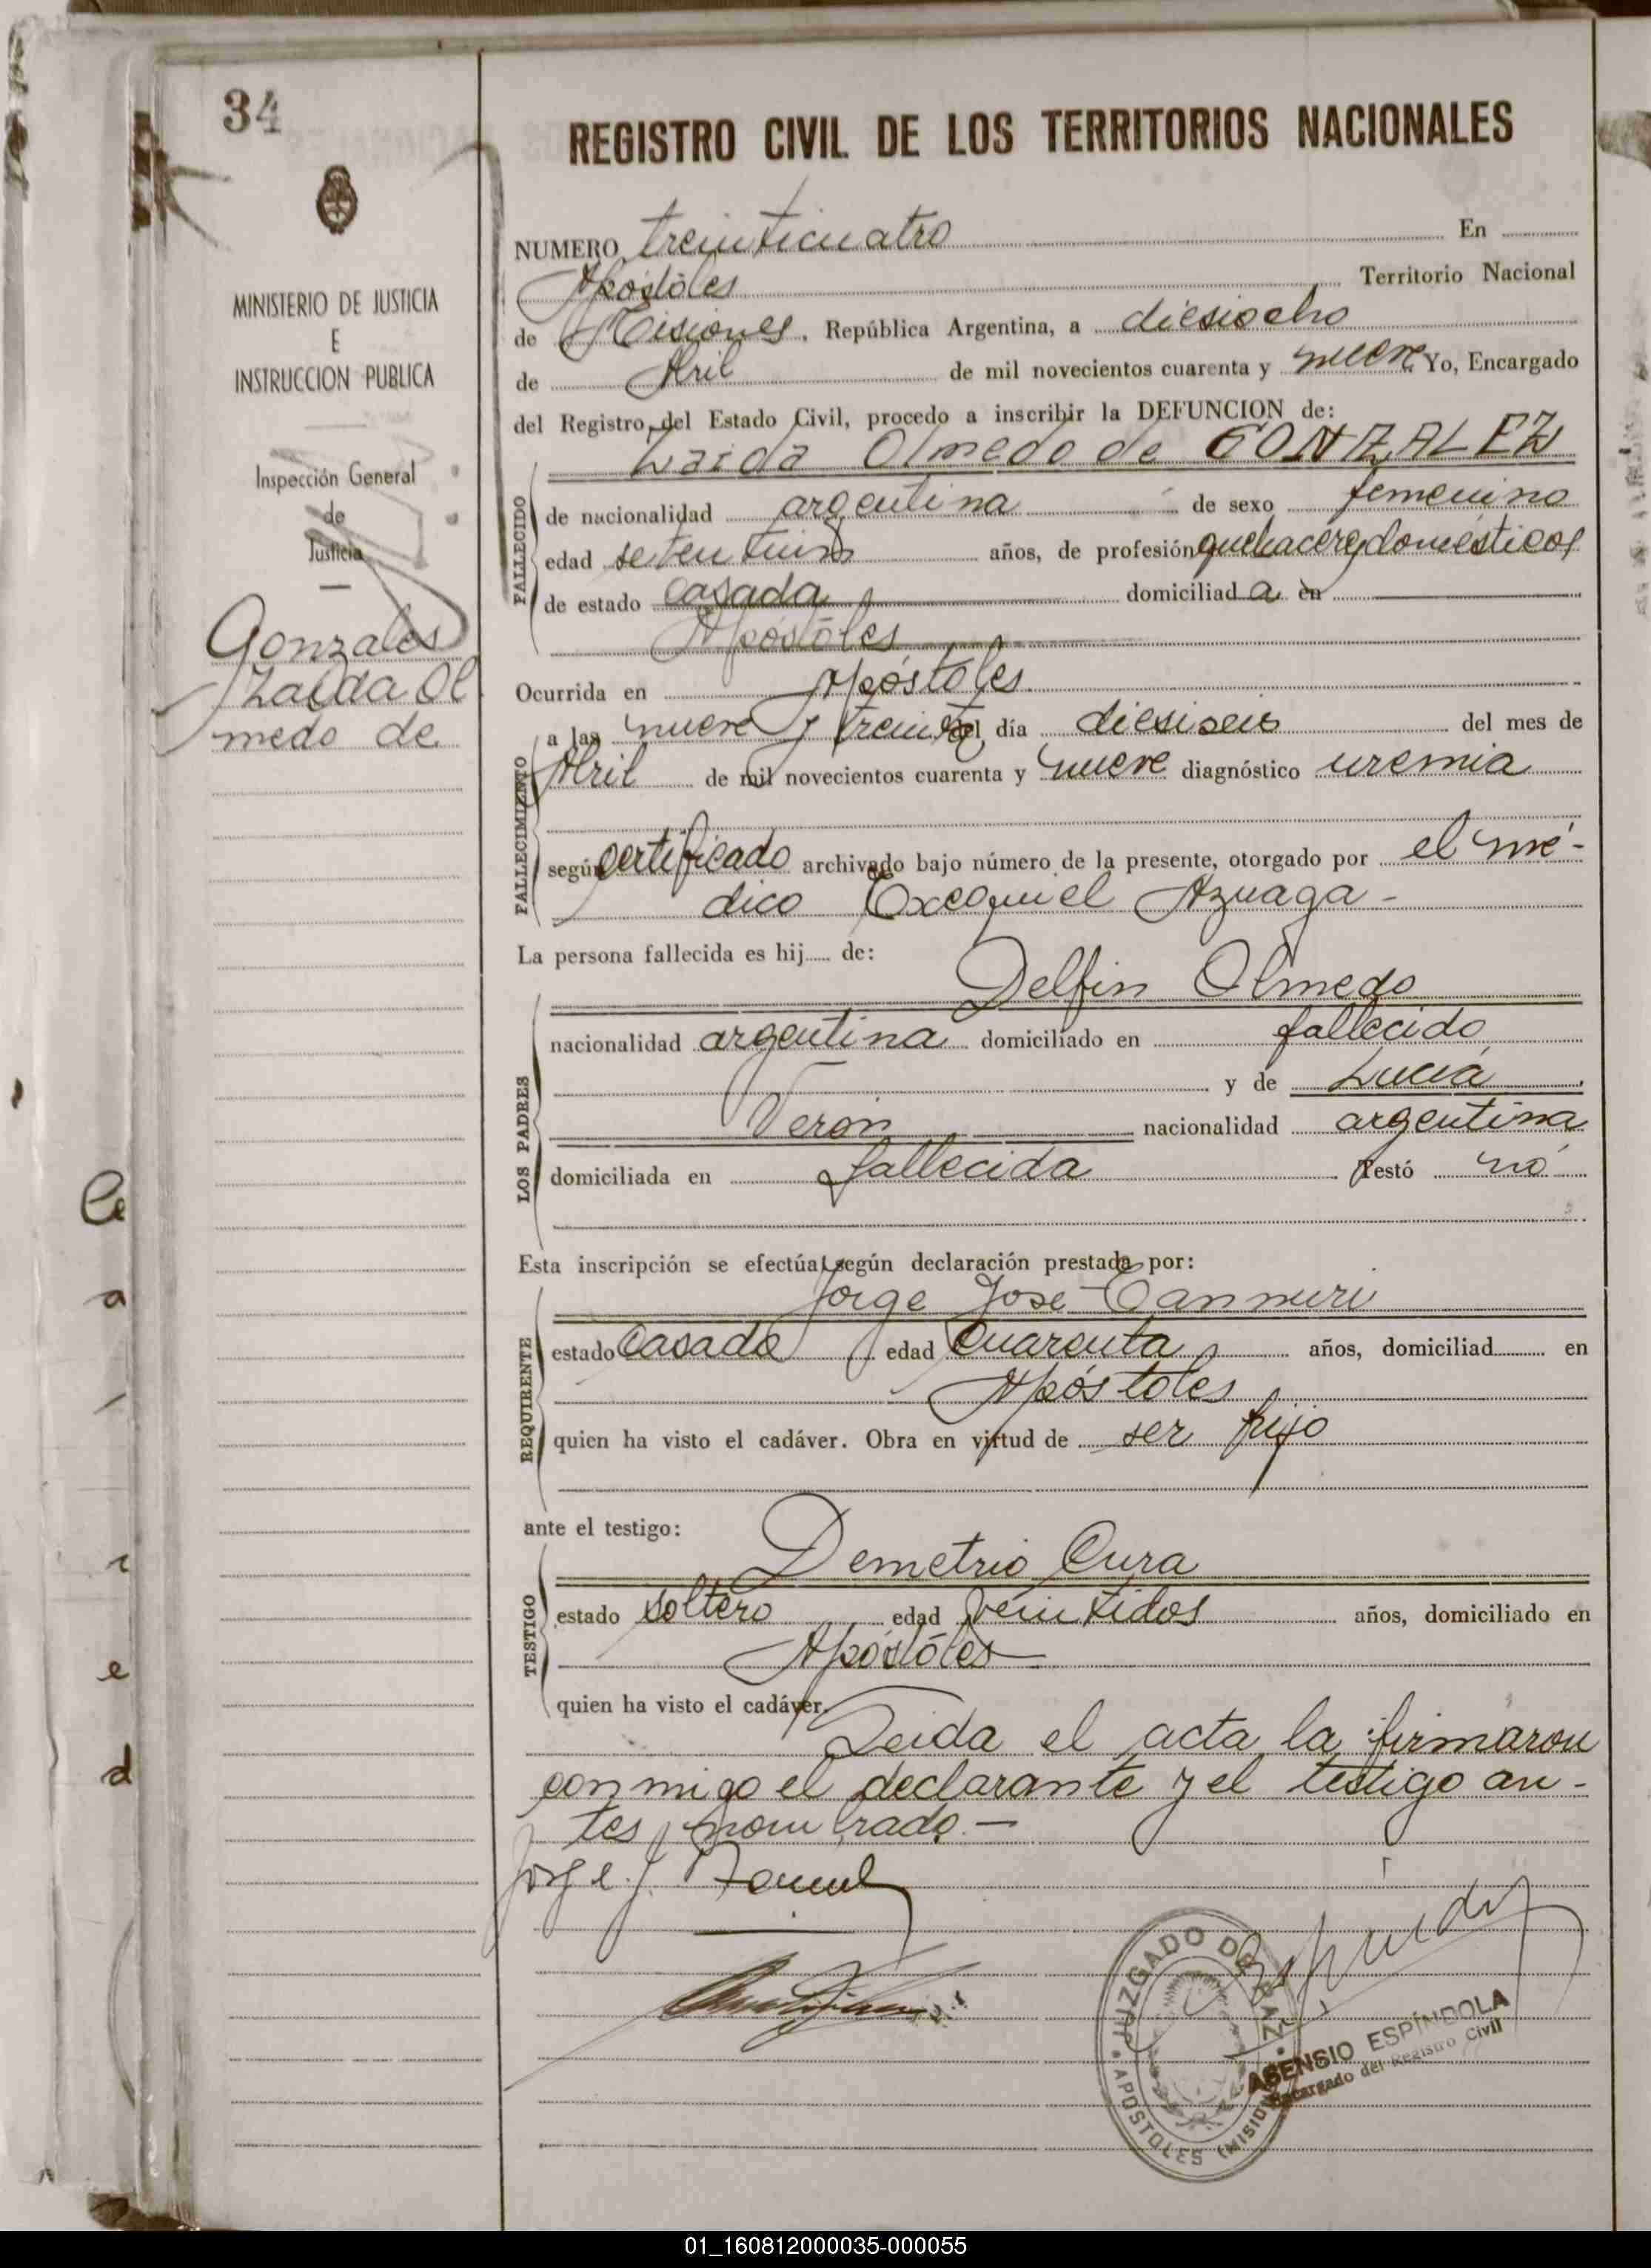 34
REGISTRO CIVIL DE LOS TERRITORIOS NACIONALES
MINISTERIO DE JUSTICIA
E
INSTRUCCION PUBLICA
Inspección General
de
Justicia
Gonzales
Zaida Ol
medo de
NUMERO treinticuatro En
Apóstoles Territorio Nacional
de Misiones, República Argentina, a diesiocho
de Abril de mil novecientos cuarenta y nueve Yo, Encargado
del Registro del Estado Civil, procedo a inscribir la DEFUNCION de:
Zaida Olmedo de GONZALEZ
FALLECIDO
de nacionalidad argentina de sexo femenino
edad setentiun años, de profesión quehaceres domésticos
de estado casada domiciliada en
Apóstoles
FALLECIMIENTO
Ocurrida en Apóstoles
a las nueve y treinta del día diesiseis del mes de
Abril de mil novecientos cuarenta y nueve diagnóstico uremia
según certificado archivado bajo número de la presente, otorgado por el mé-
dico Exequiel Azuaga -
La persona fallecida es hij..... de:
LOS PADRES
Delfin Olmedo
nacionalidad argentina domiciliado en fallecido
y de Lucía
Verón nacionalidad argentina
domiciliada en fallecida Testó nó
Esta inscripción se efectúa según declaración prestada por:
REQUIRENTE
Jorge José
estado casado edad cuarenta años, domiciliad en
Apóstoles
quien ha visto el cadáver. Obra en virtud de ser hijo
ante el testigo:
TESTIGO
Demetrio Cura
estado soltero edad veintidos años, domiciliado en
Apóstoles
quien ha visto el cadáver.
Leida el acta la firmaron
conmigo el declarante y el testigo an-
tes nombrado.-
Jorge J.
JUZGADO DE PAZ
APOSTOLES (MISIONES)
ASENSIO ESPÍNDOLA
Encargado del Registro Civil
01_160812000035-000055